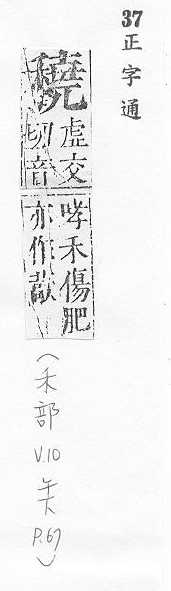 37正字通
穘
虛交
切音
哮禾傷肥
亦作
(禾部 V.10 午下 P.67)